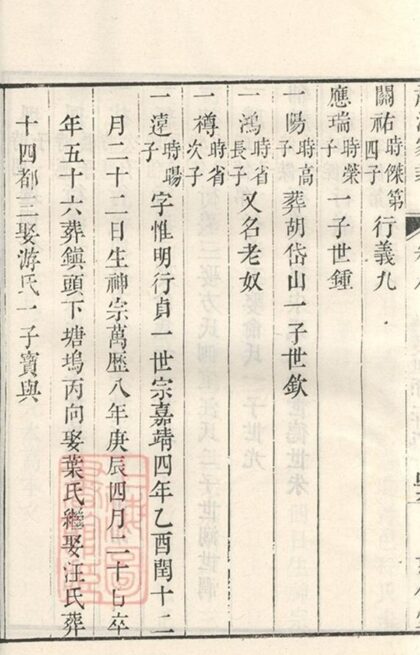 關祐時傑第四子行義九
應瑞時榮子一子世鍾
一陽時高子葬胡岱山一子世欽
一鴻時省長子又名老奴
一樽時省次子
一遠時暘子字惟明行貞一世宗嘉靖四年乙酉閏十二
月二十二日生神宗萬歷八年庚辰四月二十七卒
年五十六葬鎭頭下塘塢丙向娶葉氏繼娶汪氏葬
十四都三娶游氏一子寶與